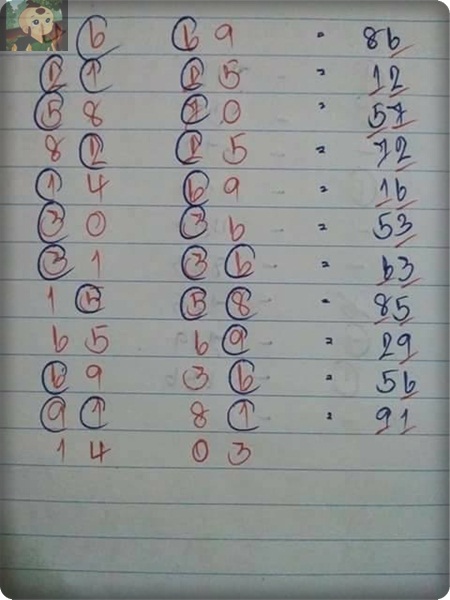 6 69 = 86
21 25 = 12
58 70 = 57
82 25 = 72
14 69 = 16
30 36 = 53
31 36 = 63
15 58 = 85
65 69 = 29
69 36 = 56
91 81 = 91
14 03